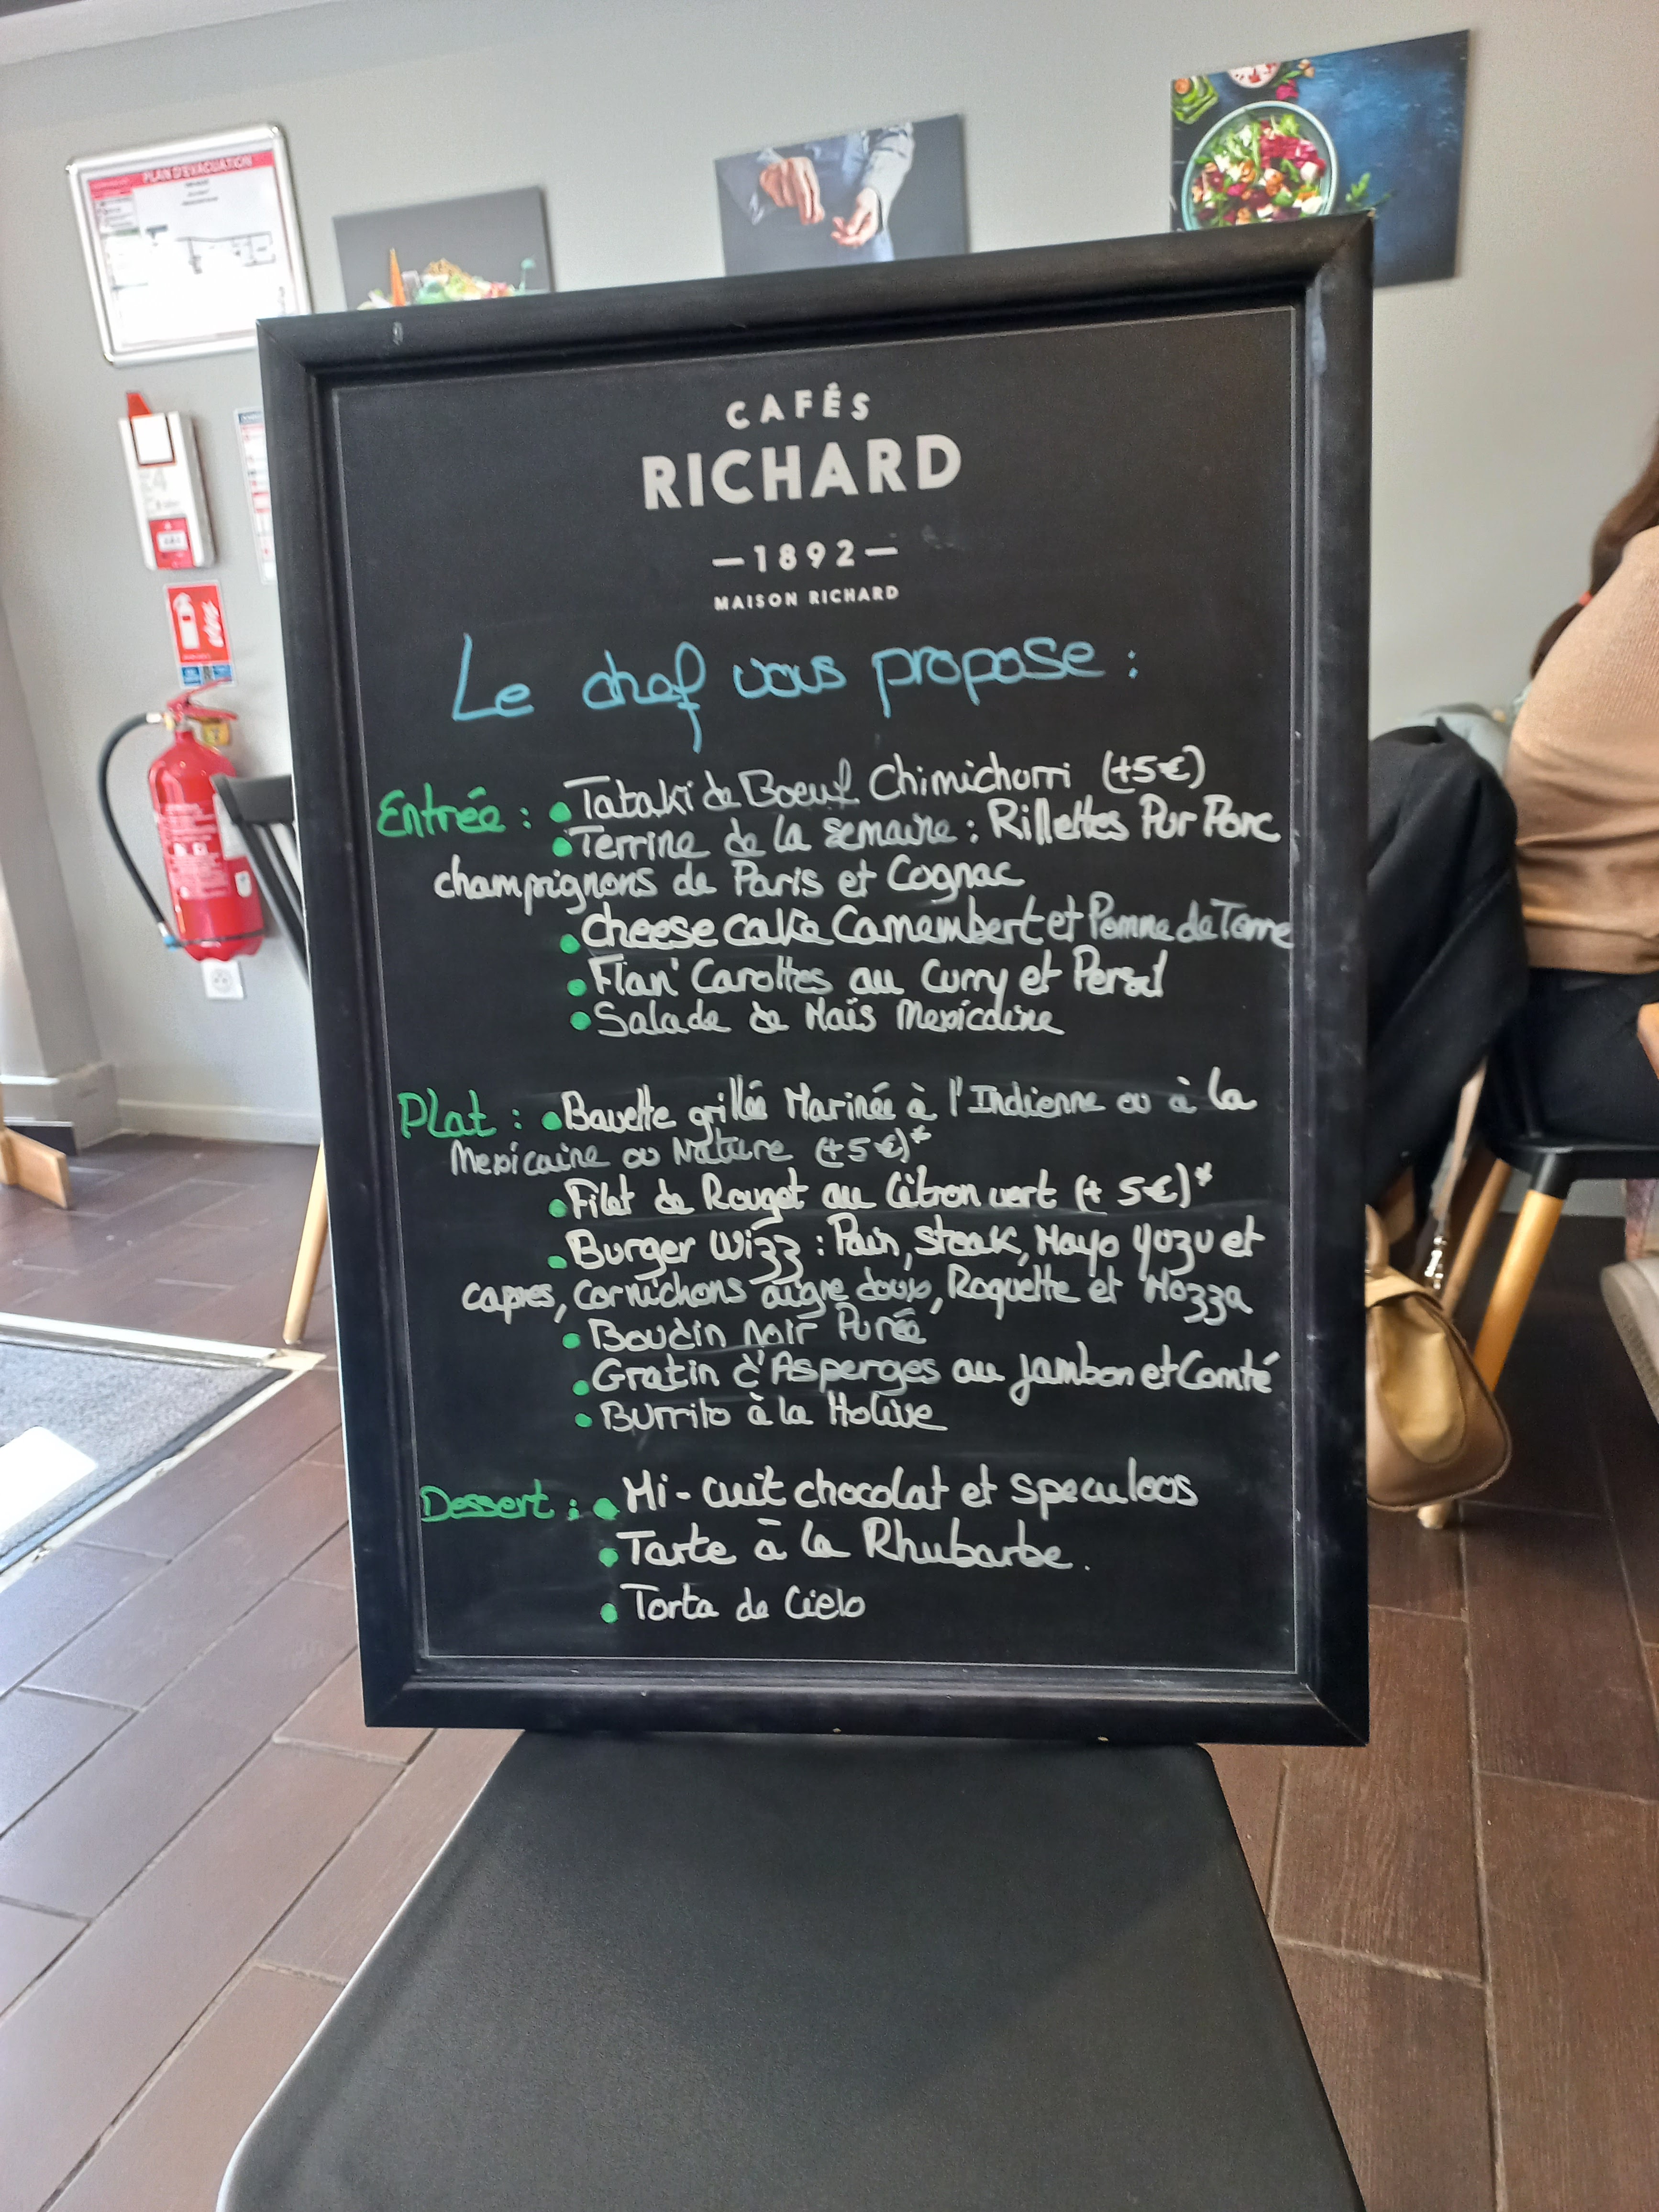 PLAN D'EVACUATION
CAFÉS
RICHARD
—1892—
MAISON RICHARD
Le chef vous propose :
Entrée : • Tataki de Boeuf Chimichorri (+5€)
• Terrine de la semaine : Rillettes Pur Porc
champignons de Paris et Cognac
• cheese cake Camembert et Pomme de Terre
• Flan' Carottes au Curry et Persil
• Salade de Maïs Mexicaine
Plat : • Bavette grillée Marinée à l'Indienne ou à la
Mexicaine ou Nature (+5€)*
• Filet de Rouget au Citron vert (+ 5€)*
• Burger Wizz : Pain, Steak, Mayo Yuzu et
capres, Cornichons aigre doux, Roquette et Mozza
• Boudin Noir Purée
• Gratin d'Asperges au jambon et Comté
• Burrito à la
Dessert : • Mi-cuit chocolat et speculoos
• Tarte à la Rhubarbe.
• Torta de Cielo